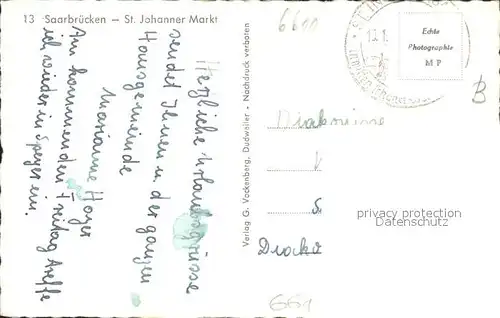 13 Saarbrücken – St. Johanner Markt
Herzliche Urlaubsgrüsse
sendet Ihnen u. der ganzen
Hausgemeinde
Marianne Hoyer
Am kommenden Freitag treffe
ich wieder in Speyer ein.
Verlag G. Vockenberg, Dudweiler - Nachdruck verboten
6600
Echte
Photographie
M P
B
Diakonisse
privacy protection
Datenschutz
661